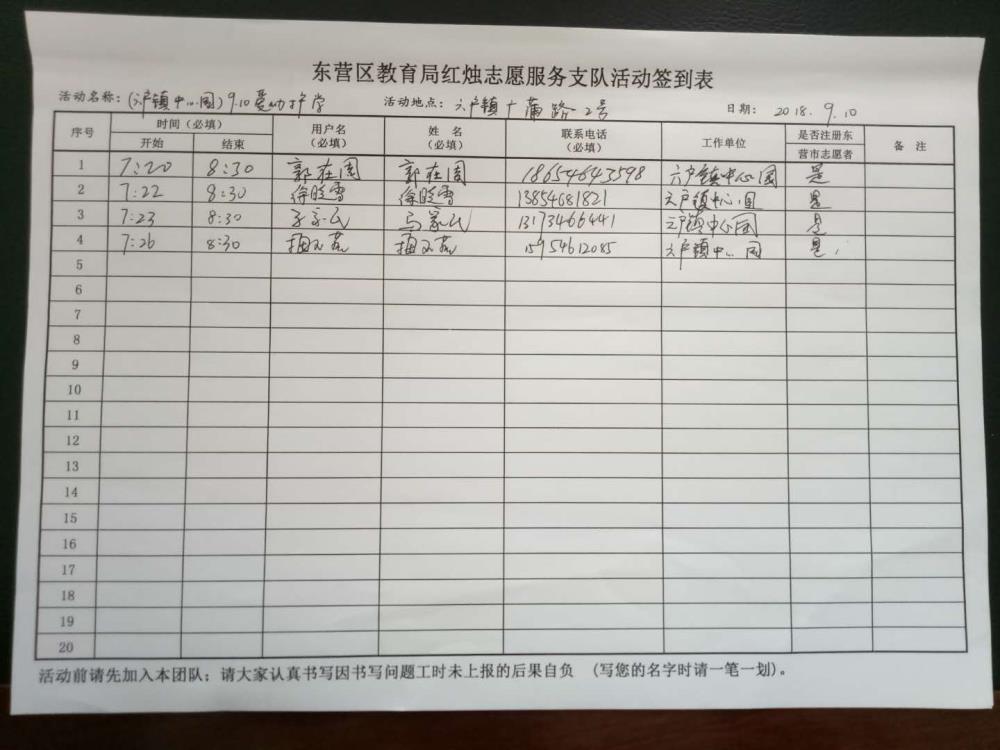 东营区教育局红烛志愿服务支队活动签到表
活动名称：(六户镇中心园) 9.10 爱心护学 活动地点：六户镇广蒲路 2号 日期：2018.9.10
序号 时间（必填） 用户名（必填） 姓 名（必填） 联系电话（必填） 工作单位 是否注册东营市志愿者 备 注
开始 结束
1 7:20 8:30 郭在园 郭在园 18654643598 六户镇中心园 是
2 7:22 8:30 徐晓雪 徐晓雪 13854681821 六户镇中心园 是
3 7:23 8:30 13173466441 六户镇中心园 是
4 7:26 8:30 15954612085 六户镇中心园 是
5
6
7
8
9
10
11
12
13
14
15
16
17
18
19
20
活动前请先加入本团队；请大家认真书写因书写问题工时未上报的后果自负 （写您的名字时请一笔一划）。